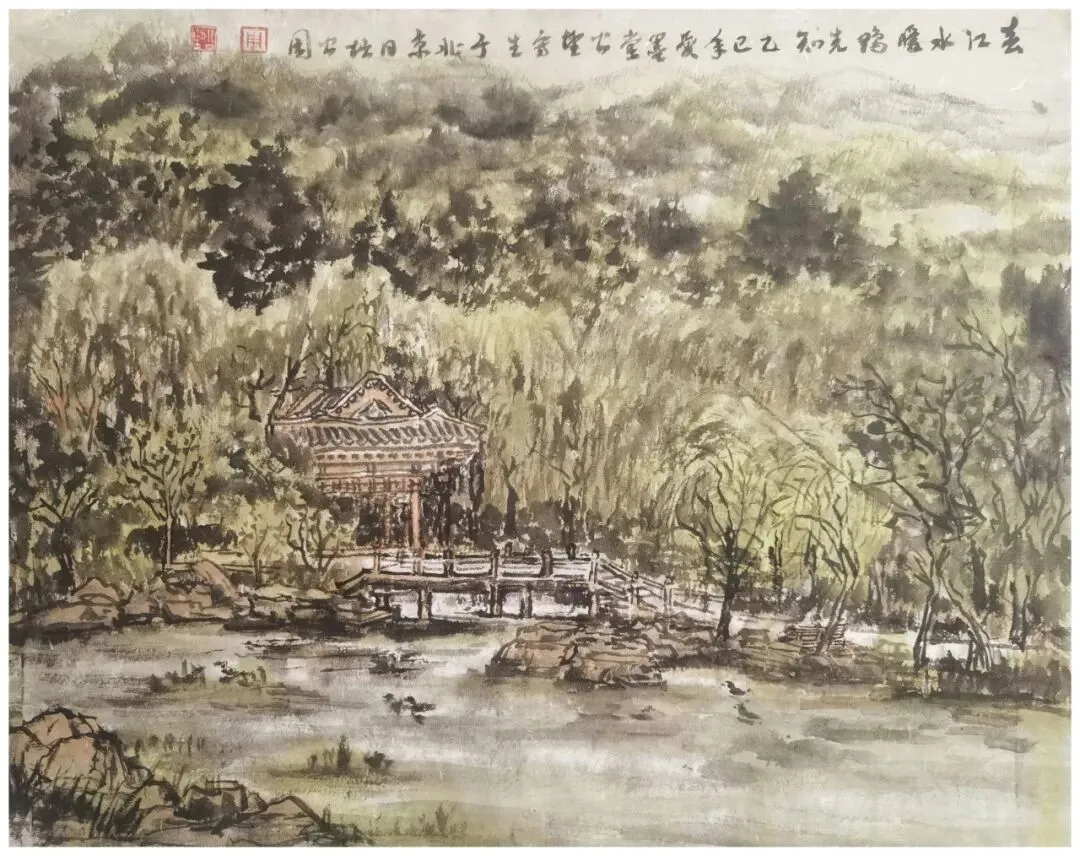 春江水暖鸭先知 乙巳年爱墨堂写生于北京日坛公园